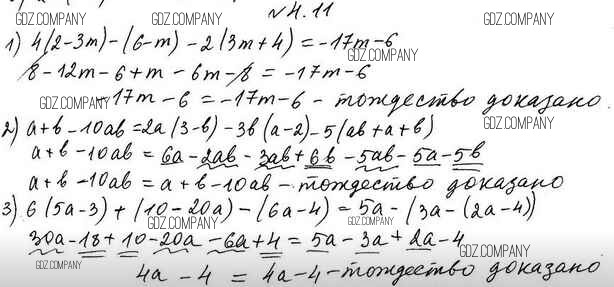 №4.11
1) 4(2-3m)-(6-m)-2(3m+4)=-17m-6
8-12m-6+m-6m-8=-17m-6
-17m-6=-17m-6-тождество доказано.
2) a+b-10ab=2a(3-b)-3b(a-2)-5(ab+a+b)
a+b-10ab=6a-2ab-3ab+6b-5ab-5a-5b
a+b-10ab=a+b-10ab-тождество доказано
3) 6(5a-3)+(10-20a)-(6a-4)=5a-(3a-(2a-4))
30a-18+10-20a-6a+4=5a-3a+2a-4
4a-4=4a-4-тождество доказано
GDZ.COMPANY
GDZ.COMPANY
GDZ.COMPANY
GDZ.COMPANY
GDZ.COMPANY
GDZ.COMPANY
GDZ.COMPANY
GDZ.COMPANY
GDZ.COMPANY
GDZ.COMPANY
GDZ.COMPANY